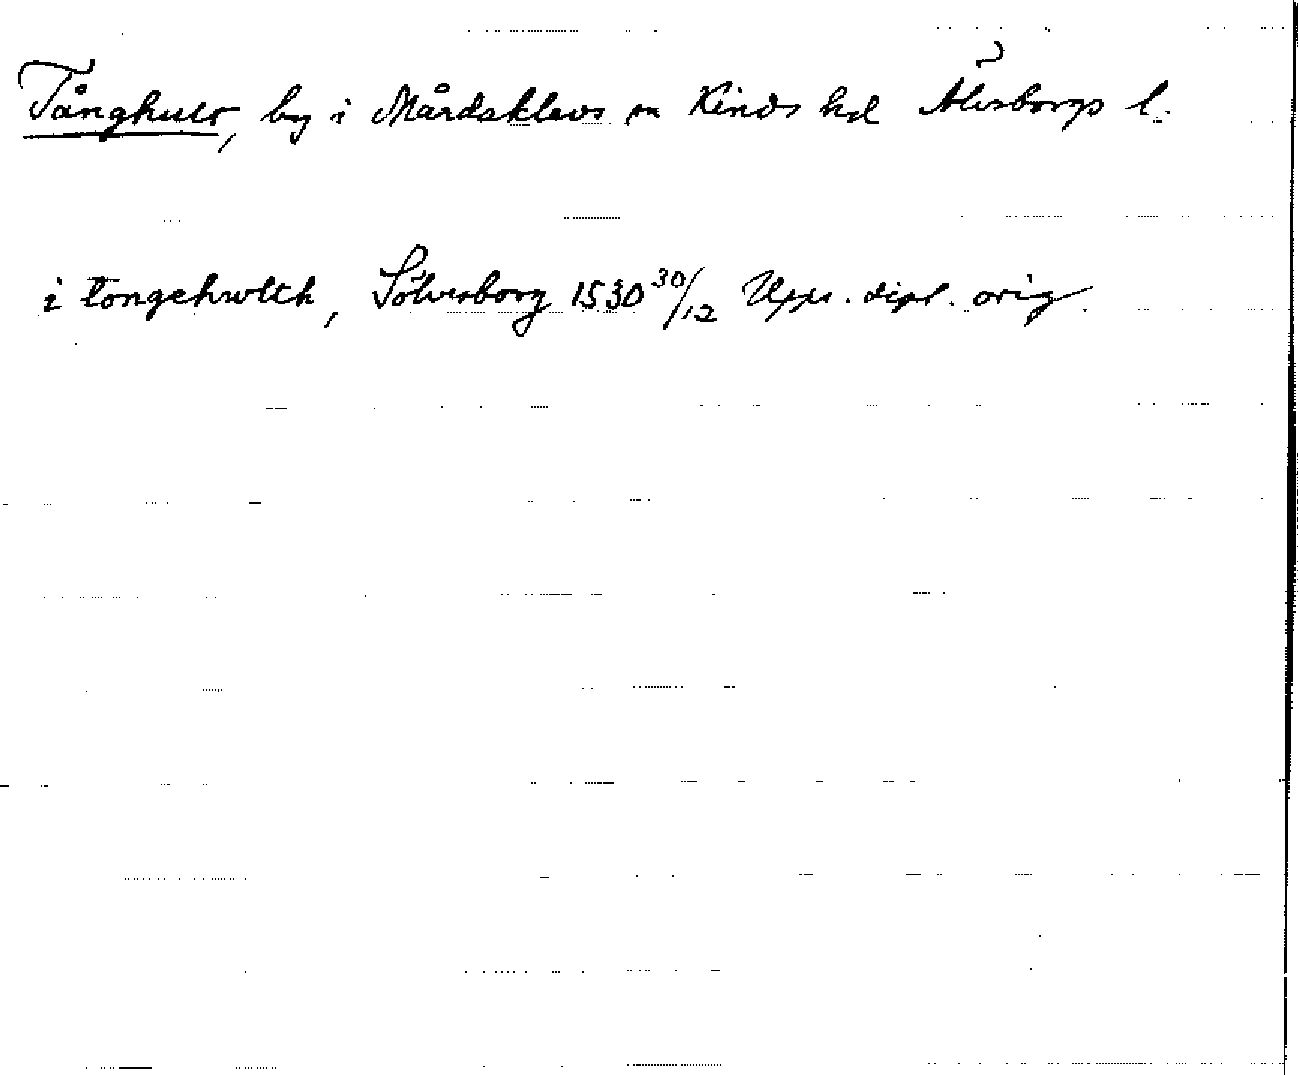 Tånghult, by i Mårdaklevs sn Kinds hd Älvsborgs l.
i tongehwlth, Sölvesborg 1530 30/12 Upps. dipl. orig.